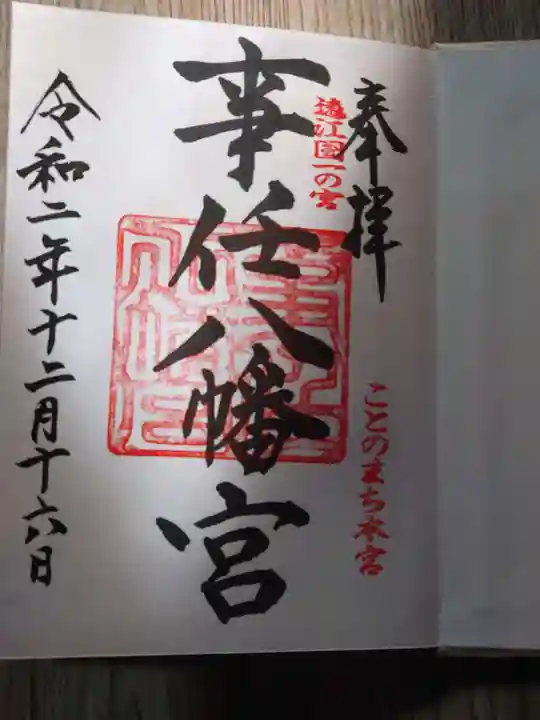 奉拝
ことのまち本宮
遠江国一の宮
事任八幡宮
令和二年十二月十六日